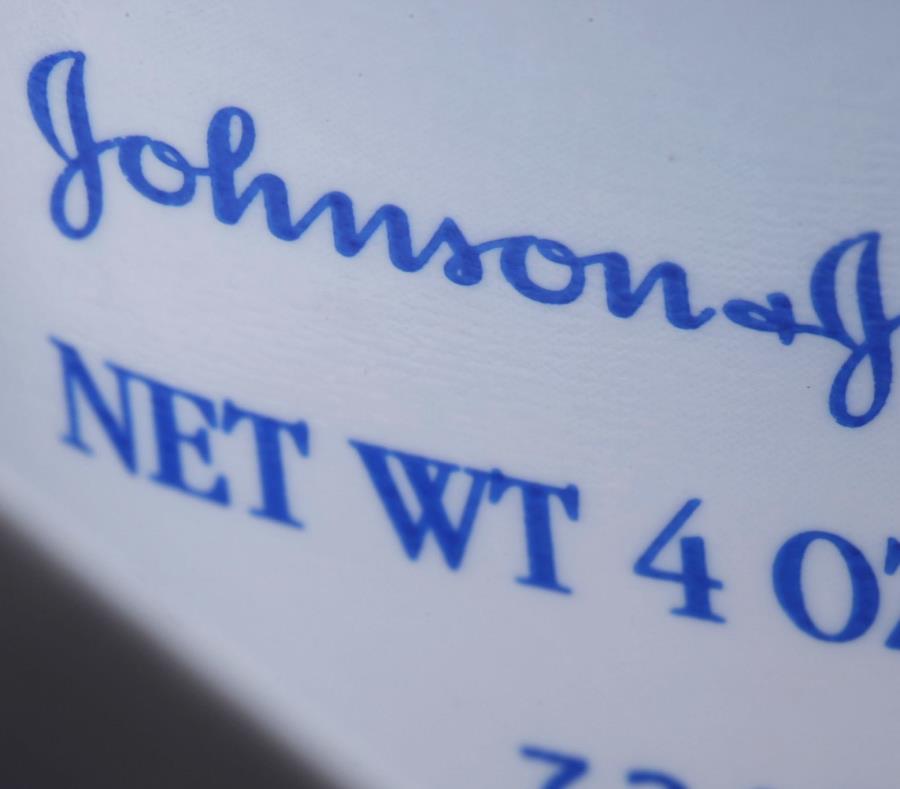 Johnson & J
NET WT 4 OZ